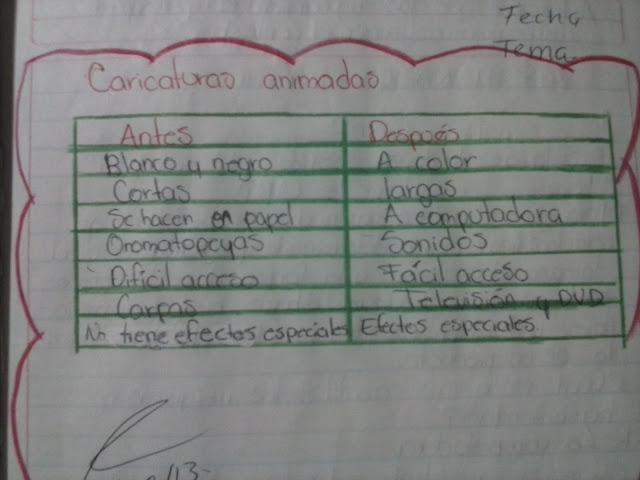 Fecha
Tema
Caricaturas animadas
Antes Después
Blanco y negro A color
Cortas largas
Se hacen en papel A computadora
Onomatopeyas Sonidos
Dificil acceso Fácil acceso
Carpas Televisión y DVD
No tiene efectos especiales Efectos especiales.